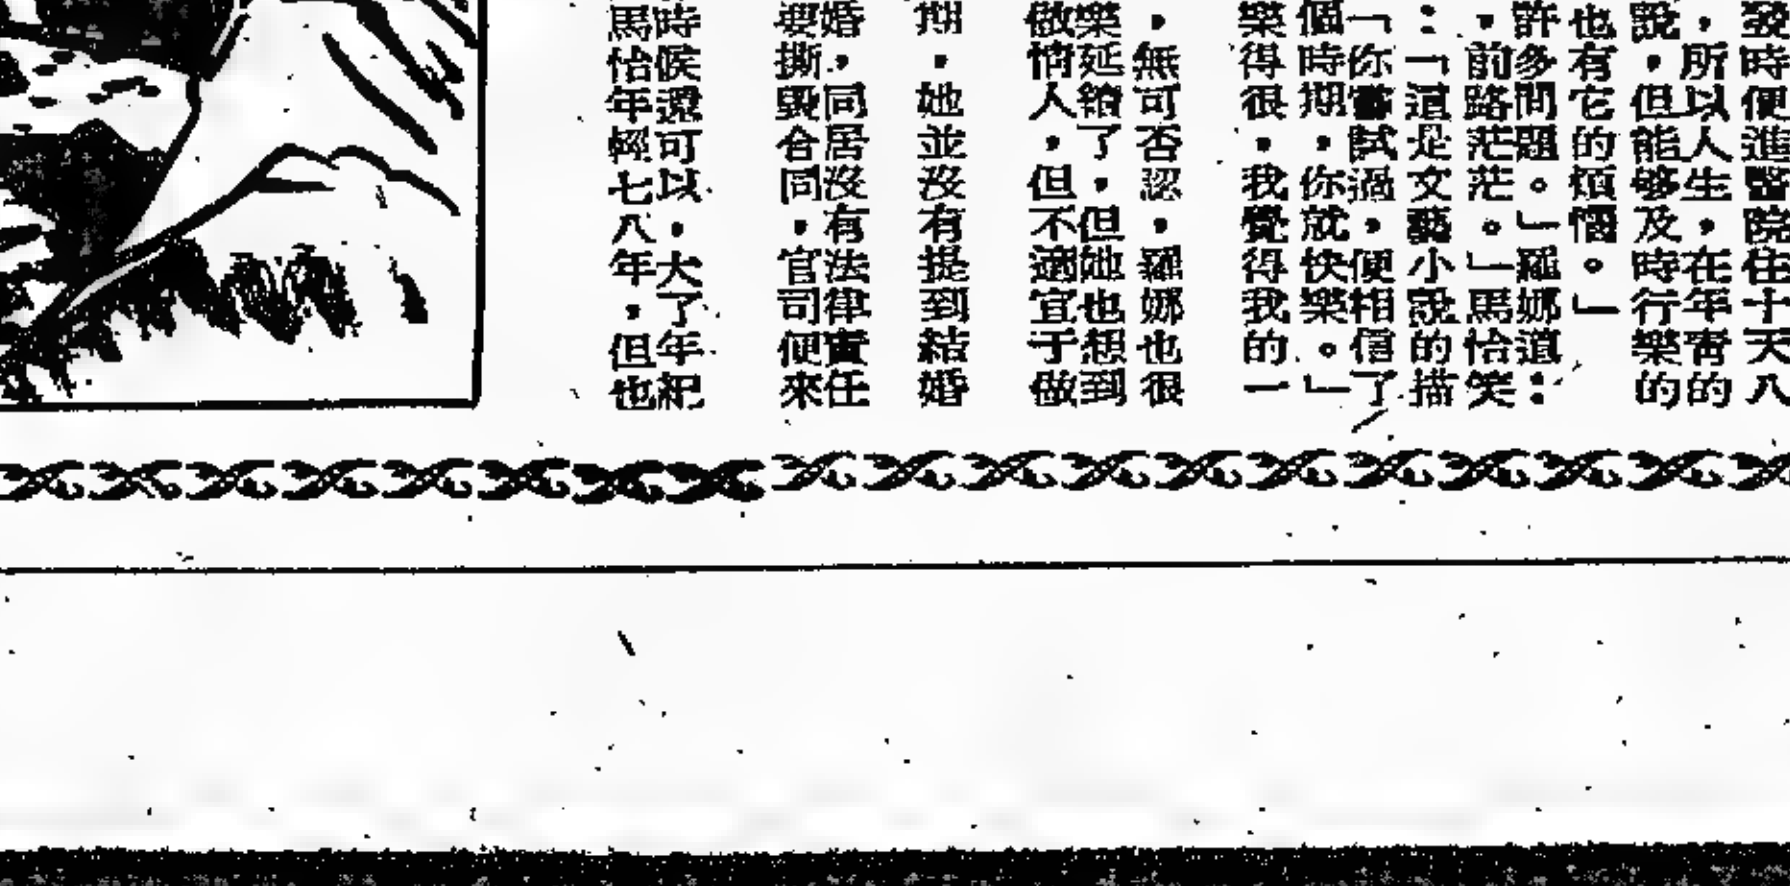 發時便進醫院住十天八
，所以人生，在年青的
說，但能够及時行樂的
也有它的煩惱。」
許多問題。」羅娜道：
，前路茫茫。」馬恰笑
：「這是文藝小說的描
「你嘗試過，便相信了
個時期，你就快樂。」
樂得很，我覺得我的一
，無可否認，羅娜也很
樂延續了，但她也想到
做情人，但不適宜于做
期，她並沒有提到結婚
婚，同居沒有法律責任
要撕毀合同，官司便來
時候還可以，大了年紀
馬恰年輕七八年，但也